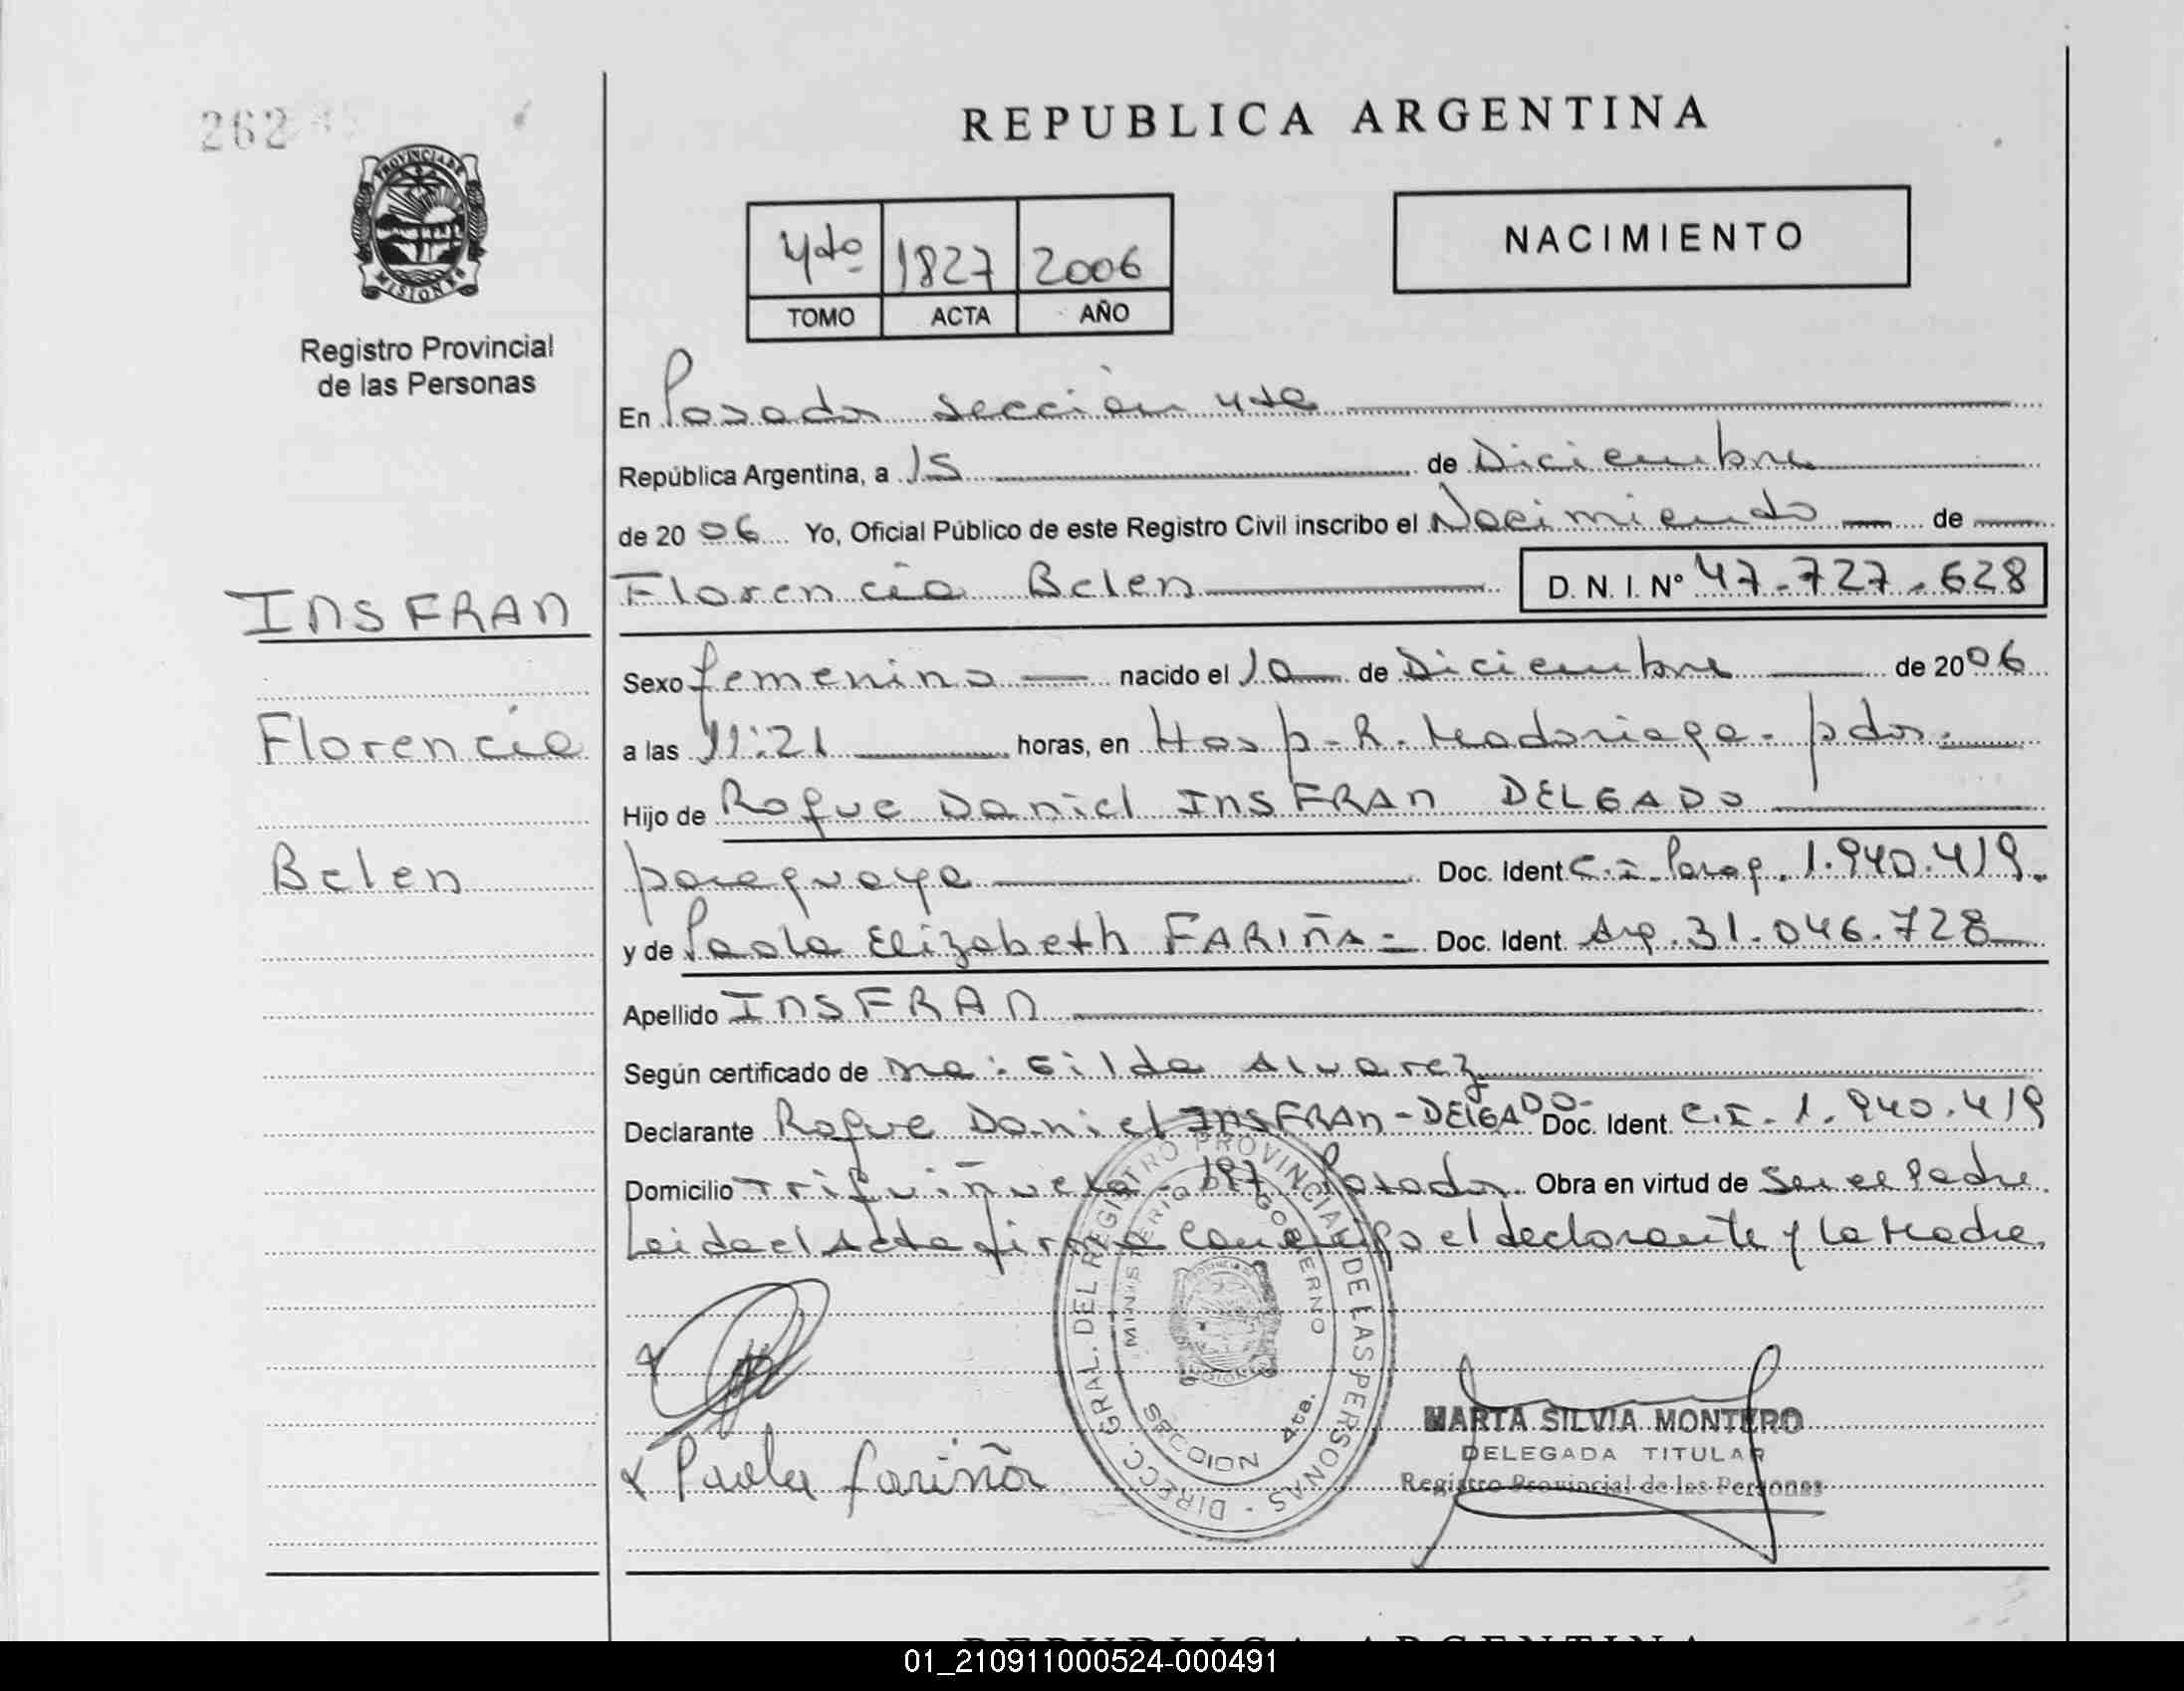 262
REPUBLICA ARGENTINA
PROVINCIA DE
MISIONES
Registro Provincial
de las Personas
4to 1827 2006
TOMO ACTA AÑO
NACIMIENTO
En Posadas sección 4ta
República Argentina, a 15 de Diciembre
de 2006 Yo, Oficial Público de este Registro Civil inscribo el Nacimiento de
INSFRAN
Florencia Belen D. N. I. Nº 47.727.628
Sexo femenino nacido el 10 de Diciembre de 2006
Florencia
a las 11:21 horas, en Hosp. R. Madariaga - pdas.
Hijo de Roque Daniel INSFRAN DELGADO
Belen
paraguaya Doc. Ident C.I. Parag. 1.940.419.
y de Paola Elizabeth FARIÑA - Doc. Ident. Arg. 31.046.728
Apellido INSFRAN
Según certificado de Gilda Alvarez
Declarante Roque Daniel INSFRAN - DELGADO - Doc. Ident. C.I. 1.940.419
Domicilio 197 Posadas. Obra en virtud de Ser el Padre
Leida el Acta firma conmigo el declarante y la Madre.
DIRECC. GRAL. DEL REGISTRO PROVINCIAL DE LAS PERSONAS -
MINISTERIO DE GOBIERNO
SECCION 4ta.
Paola Fariña
MARTA SILVIA MONTERO
DELEGADA TITULAR
Registro Provincial de las Personas
REPUBLICA ARGENTINA
01_210911000524-000491